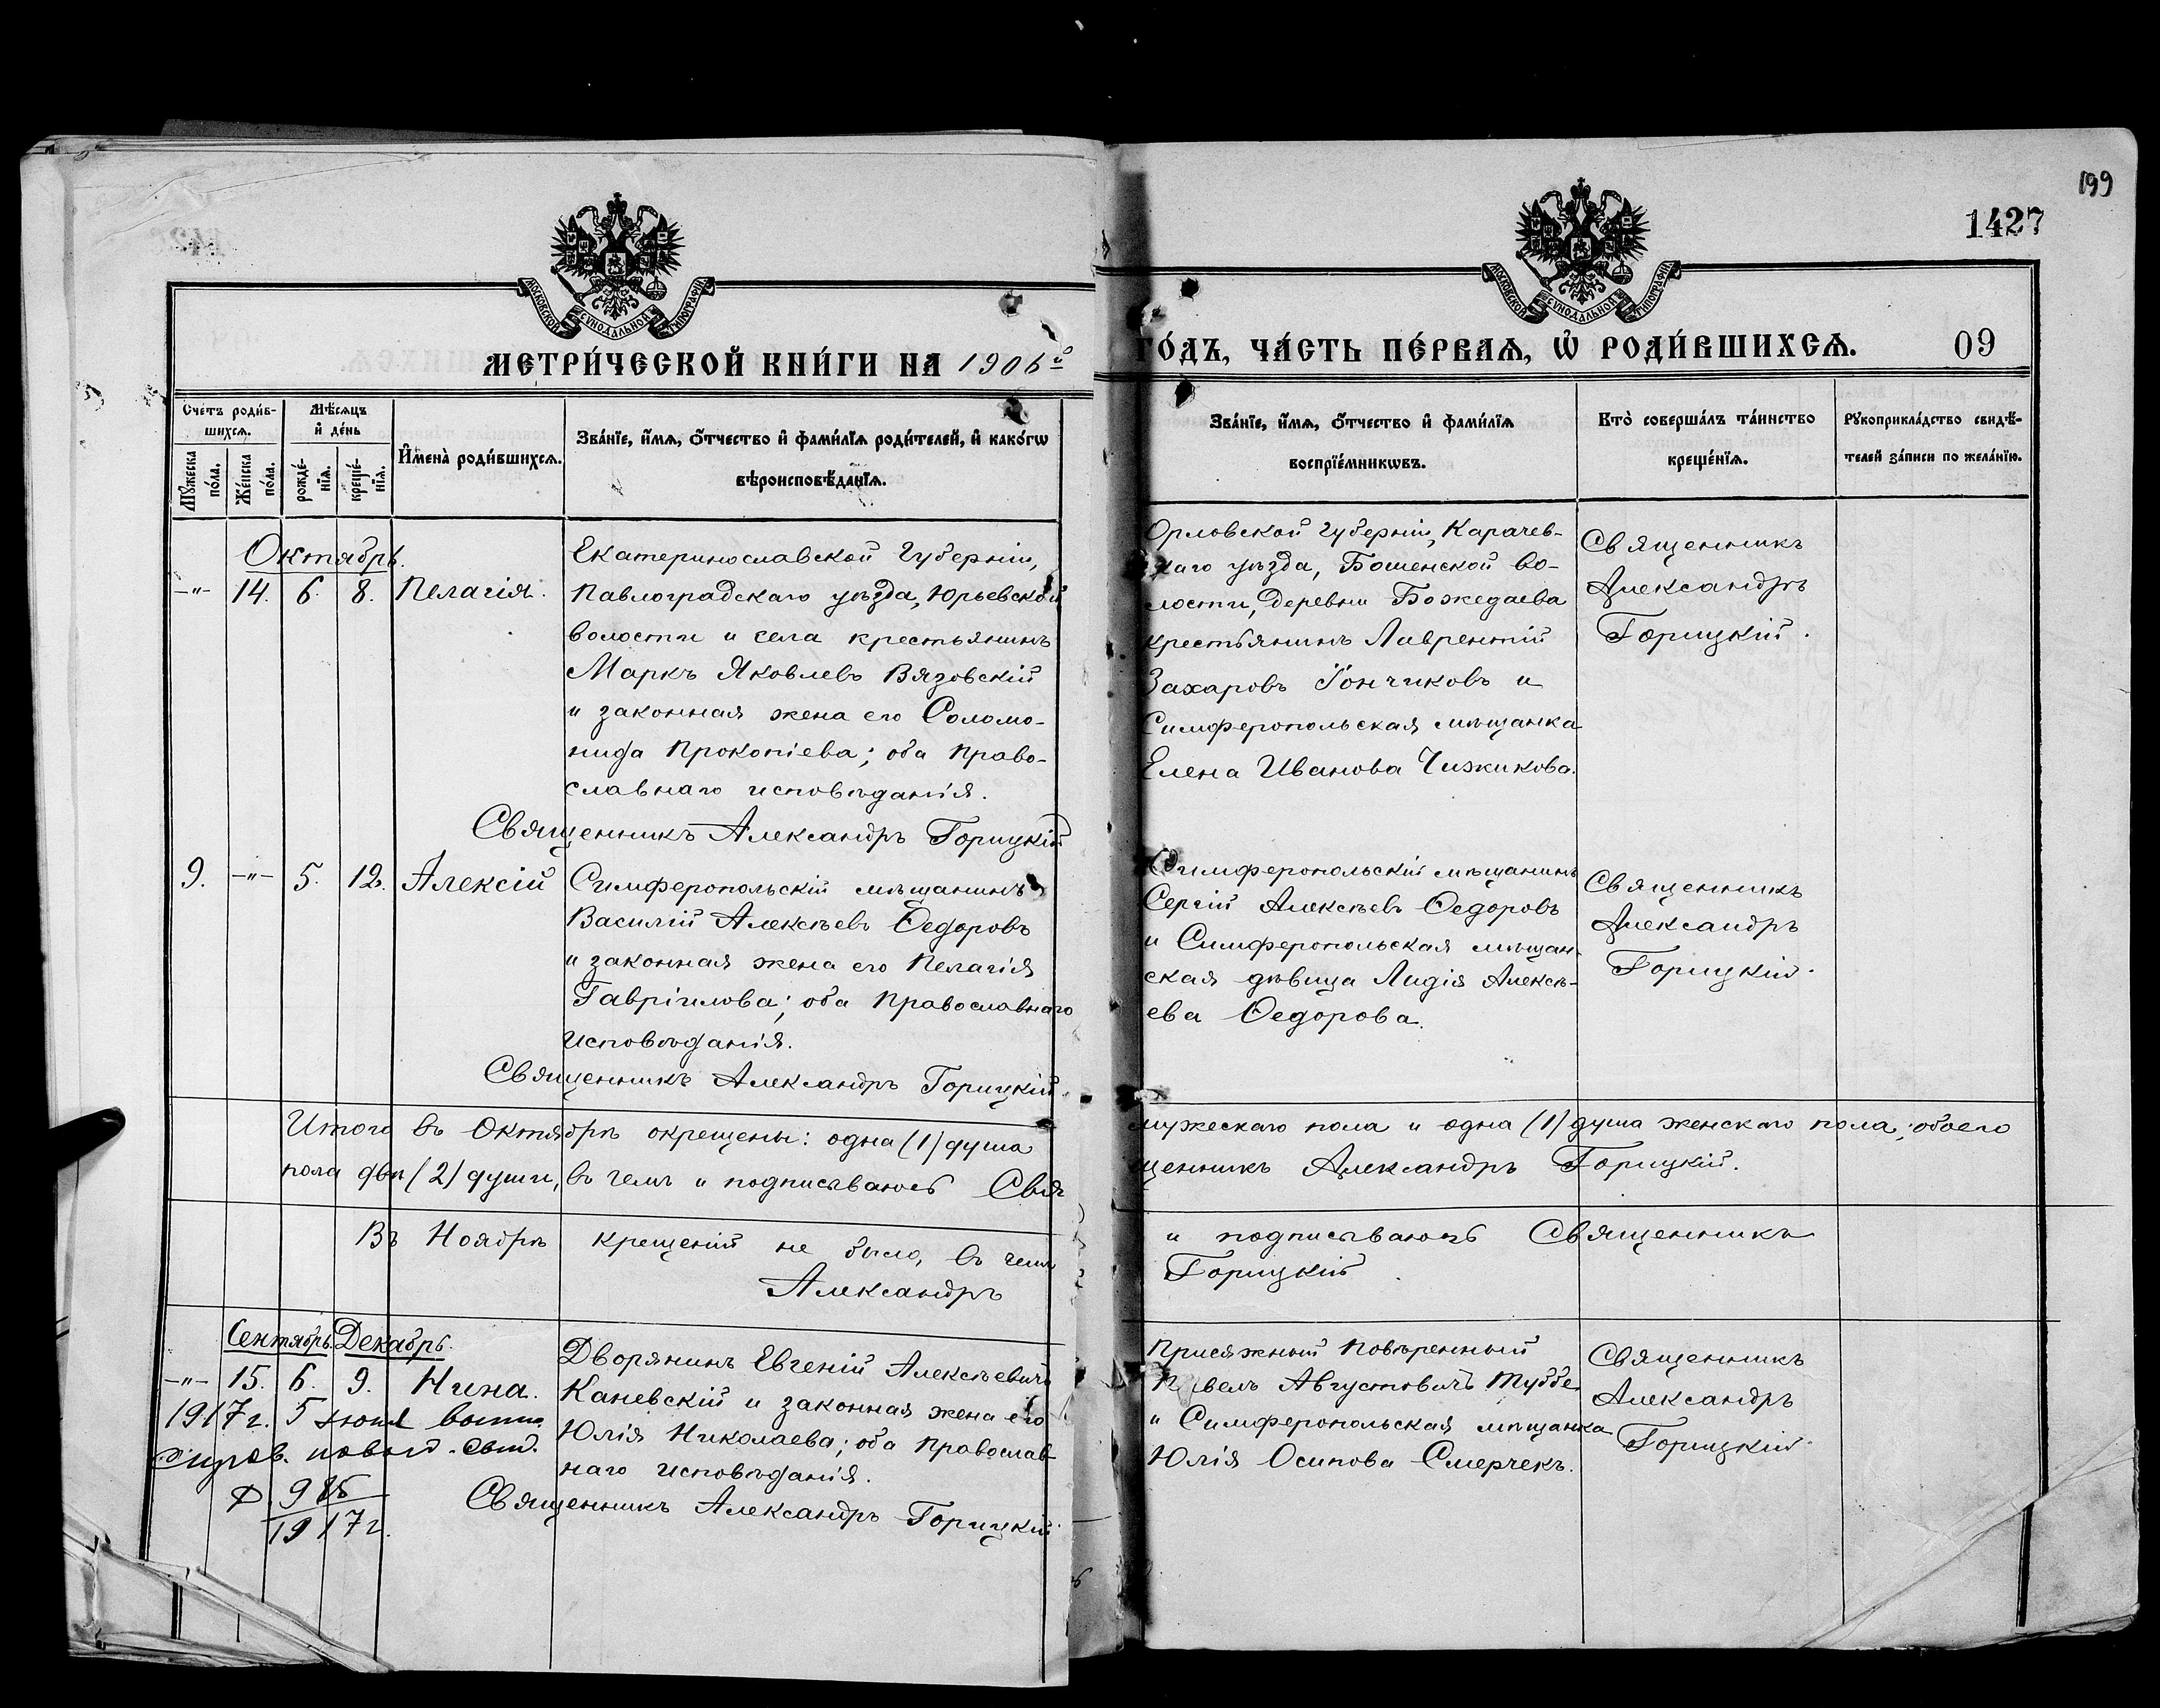 199
1427
МОСКОВСКОЙ СѴНОДАЛЬНОЙ ТИПОГРАФІИ
МОСКОВСКОЙ СѴНОДАЛЬНОЙ ТИПОГРАФІИ
МЕТРИ́ЧЕСКОЙ КНИ́ГИ НА 1906й
ГО́ДЪ, ЧА́СТЬ ПЕ́РВАѦ, Ѡ҆ РОДИ́ВШИХСѦ.
09
Сче́тъ роди́в-
шихсѧ.
Мꙋ́жеска по́ла.
Же́нска по́ла.
Мѣ́сѧцъ
и҆ де́нь
рожде́-
нїѧ.
креще́-
нїѧ.
И҆мена̀ роди́вшихсѧ.
Зва́нїе, и҆́мѧ, ѻ҆́тчество и҆ фамилїѧ роди́телей, и҆ како́гѡ
вѣроисповѣ́данїѧ.
Зва́нїе, и҆́мѧ, ѻ҆́тчество и҆ фами́лїѧ
воспрїе́мникѡвъ.
Кто̀ соверша́лъ та́инство
креще́нїѧ.
Рꙋкоприкла́дство свидѣ́-
телей за́писи по жела́нїю.
Октябрь.
-"- 14. 6. 8. Пелагія.
Екатеринославской Губерніи,
Павлоградскаго уѣзда, Юрьевской
волости и села крестьянинъ
Маркъ Яковлевъ Вязовскій
и законная жена его Соломо-
нида Прокопіева; оба Право-
славнаго исповѣданія.
Священникъ Александръ Горицкій
Орловской Губерніи, Карачев-
скаго уѣзда, Бошенской во-
лости, деревни Божедаева
крестьянинъ Лаврентій
Захаровъ Гончиковъ и
Симферопольская мѣщанка
Елена Иванова Чижикова.
Священникъ
Александръ
Горицкій.
9. -"- 5. 12. Алексій
Симферопольскій мѣщанинъ
Василій Алексѣевъ Ѳедоровъ
и законная жена его Пелагія
Гавріилова; оба Православнаго
исповѣданія.
Священникъ Александръ Горицкій.
Симферопольскій мѣщанинъ
Сергій Алексѣевъ Ѳедоровъ
и Симферопольская мѣщан-
ская дѣвица Лидія Алексѣ-
ева Ѳедорова.
Священникъ
Александръ
Горицкій.
Итого въ Октябрѣ окрещены: одна (1) душа
мужескаго пола и одна (1) душа женскаго пола; обоего
пола двѣ (2) души, въ чемъ и подписываюсь Свя
щенникъ Александръ Горицкій.
Въ Ноябрѣ крещеній не было, въ чемъ
и подписываюсь Священникъ
Александръ
Горицкій
Сентябрь. Декабрь.
-"- 15. 6. 9. Нина.
1917 г. 5 Іюня
Ф. 985
1917 г.
Дворянинъ Евгеній Алексѣевичъ
Каневскій и законная жена его
Юлія Николаева; оба Православ-
наго исповѣданія.
Священникъ Александръ Горицкій.
Присяжный Повѣренный
Павелъ Августовичъ Туббе
и Симферопольская мѣщанка
Юлія Осипова Смерчекъ.
Священникъ
Александръ
Горицкій.